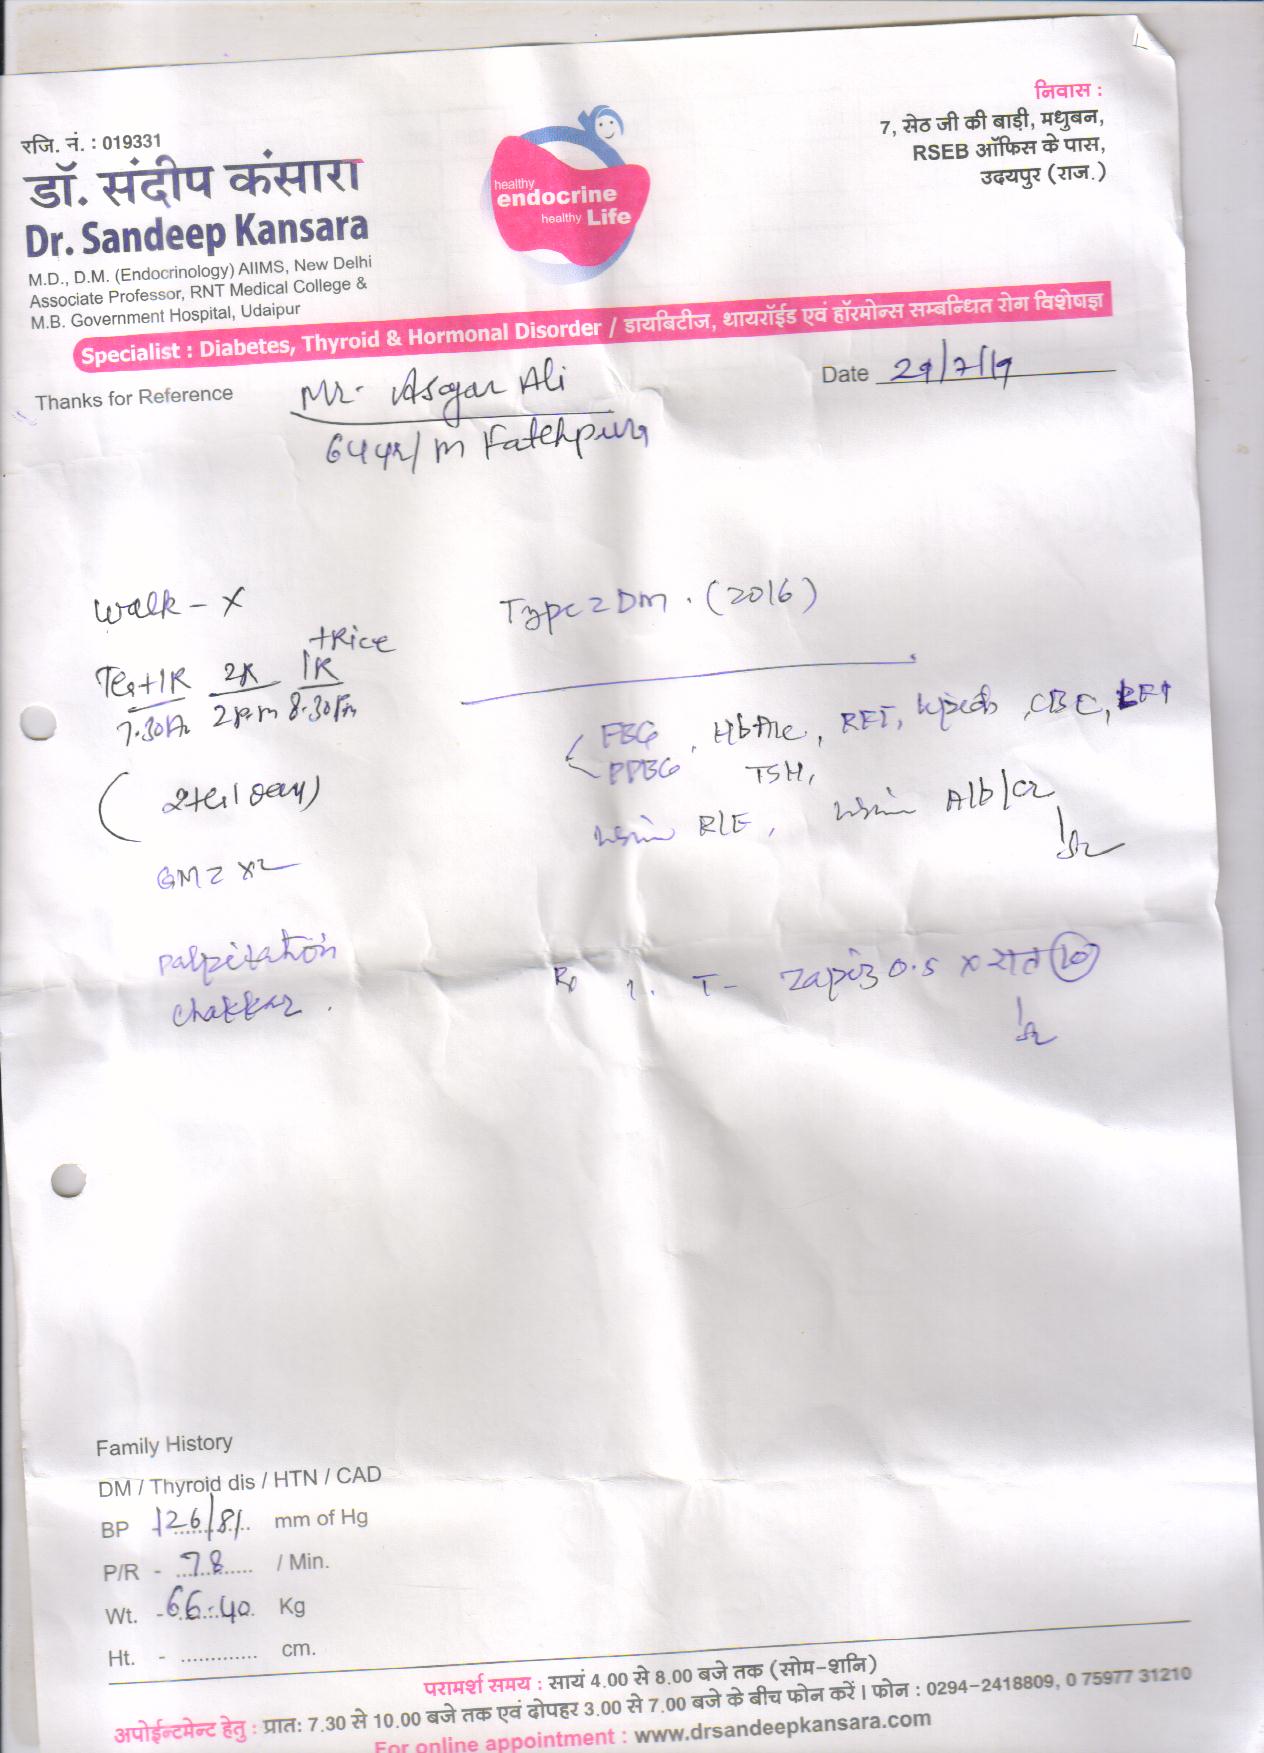 निवास :
7, सेठ जी की बाड़ी, मधुबन,
RSEB ऑफिस के पास,
उदयपुर (राज.)
रजि. नं. : 019331
डॉ. संदीप कंसारा
Dr. Sandeep Kansara
M.D., D.M. (Endocrinology) AIIMS, New Delhi
Associate Professor, RNT Medical College &
M.B. Government Hospital, Udaipur
healthy
endocrine
healthy Life
Specialist : Diabetes, Thyroid & Hormonal Disorder / डायबिटीज, थायरॉईड एवं हॉरमोन्स सम्बन्धित रोग विशेषज्ञ
Thanks for Reference Mr. Asgar Ali
Date 29/7/19
64yr/m Fatehpura
Walk - X
Type 2 Dm. (2016)
+Rice
+1R 2R 1R
7.30 2pm 8.30Pm
FBG
PPBG, HbA1c, RFT, Lipids, CBC, LFT
TSH,
R/E, Alb/Cr
GM2 x2
palpitation
chakkar.
Rx 1. T- Zapiz 0.5 x रात (10)
Family History
DM / Thyroid dis / HTN / CAD
BP 126/81 mm of Hg
P/R - 78 / Min.
Wt. - 66.40 Kg
Ht. - ............. cm.
परामर्श समय : सायं 4.00 से 8.00 बजे तक (सोम-शनि)
अपोईन्टमेन्ट हेतु : प्रातः 7.30 से 10.00 बजे तक एवं दोपहर 3.00 से 7.00 बजे के बीच फोन करें। फोन : 0294-2418809, 0 75977 31210
For online appointment : www.drsandeepkansara.com